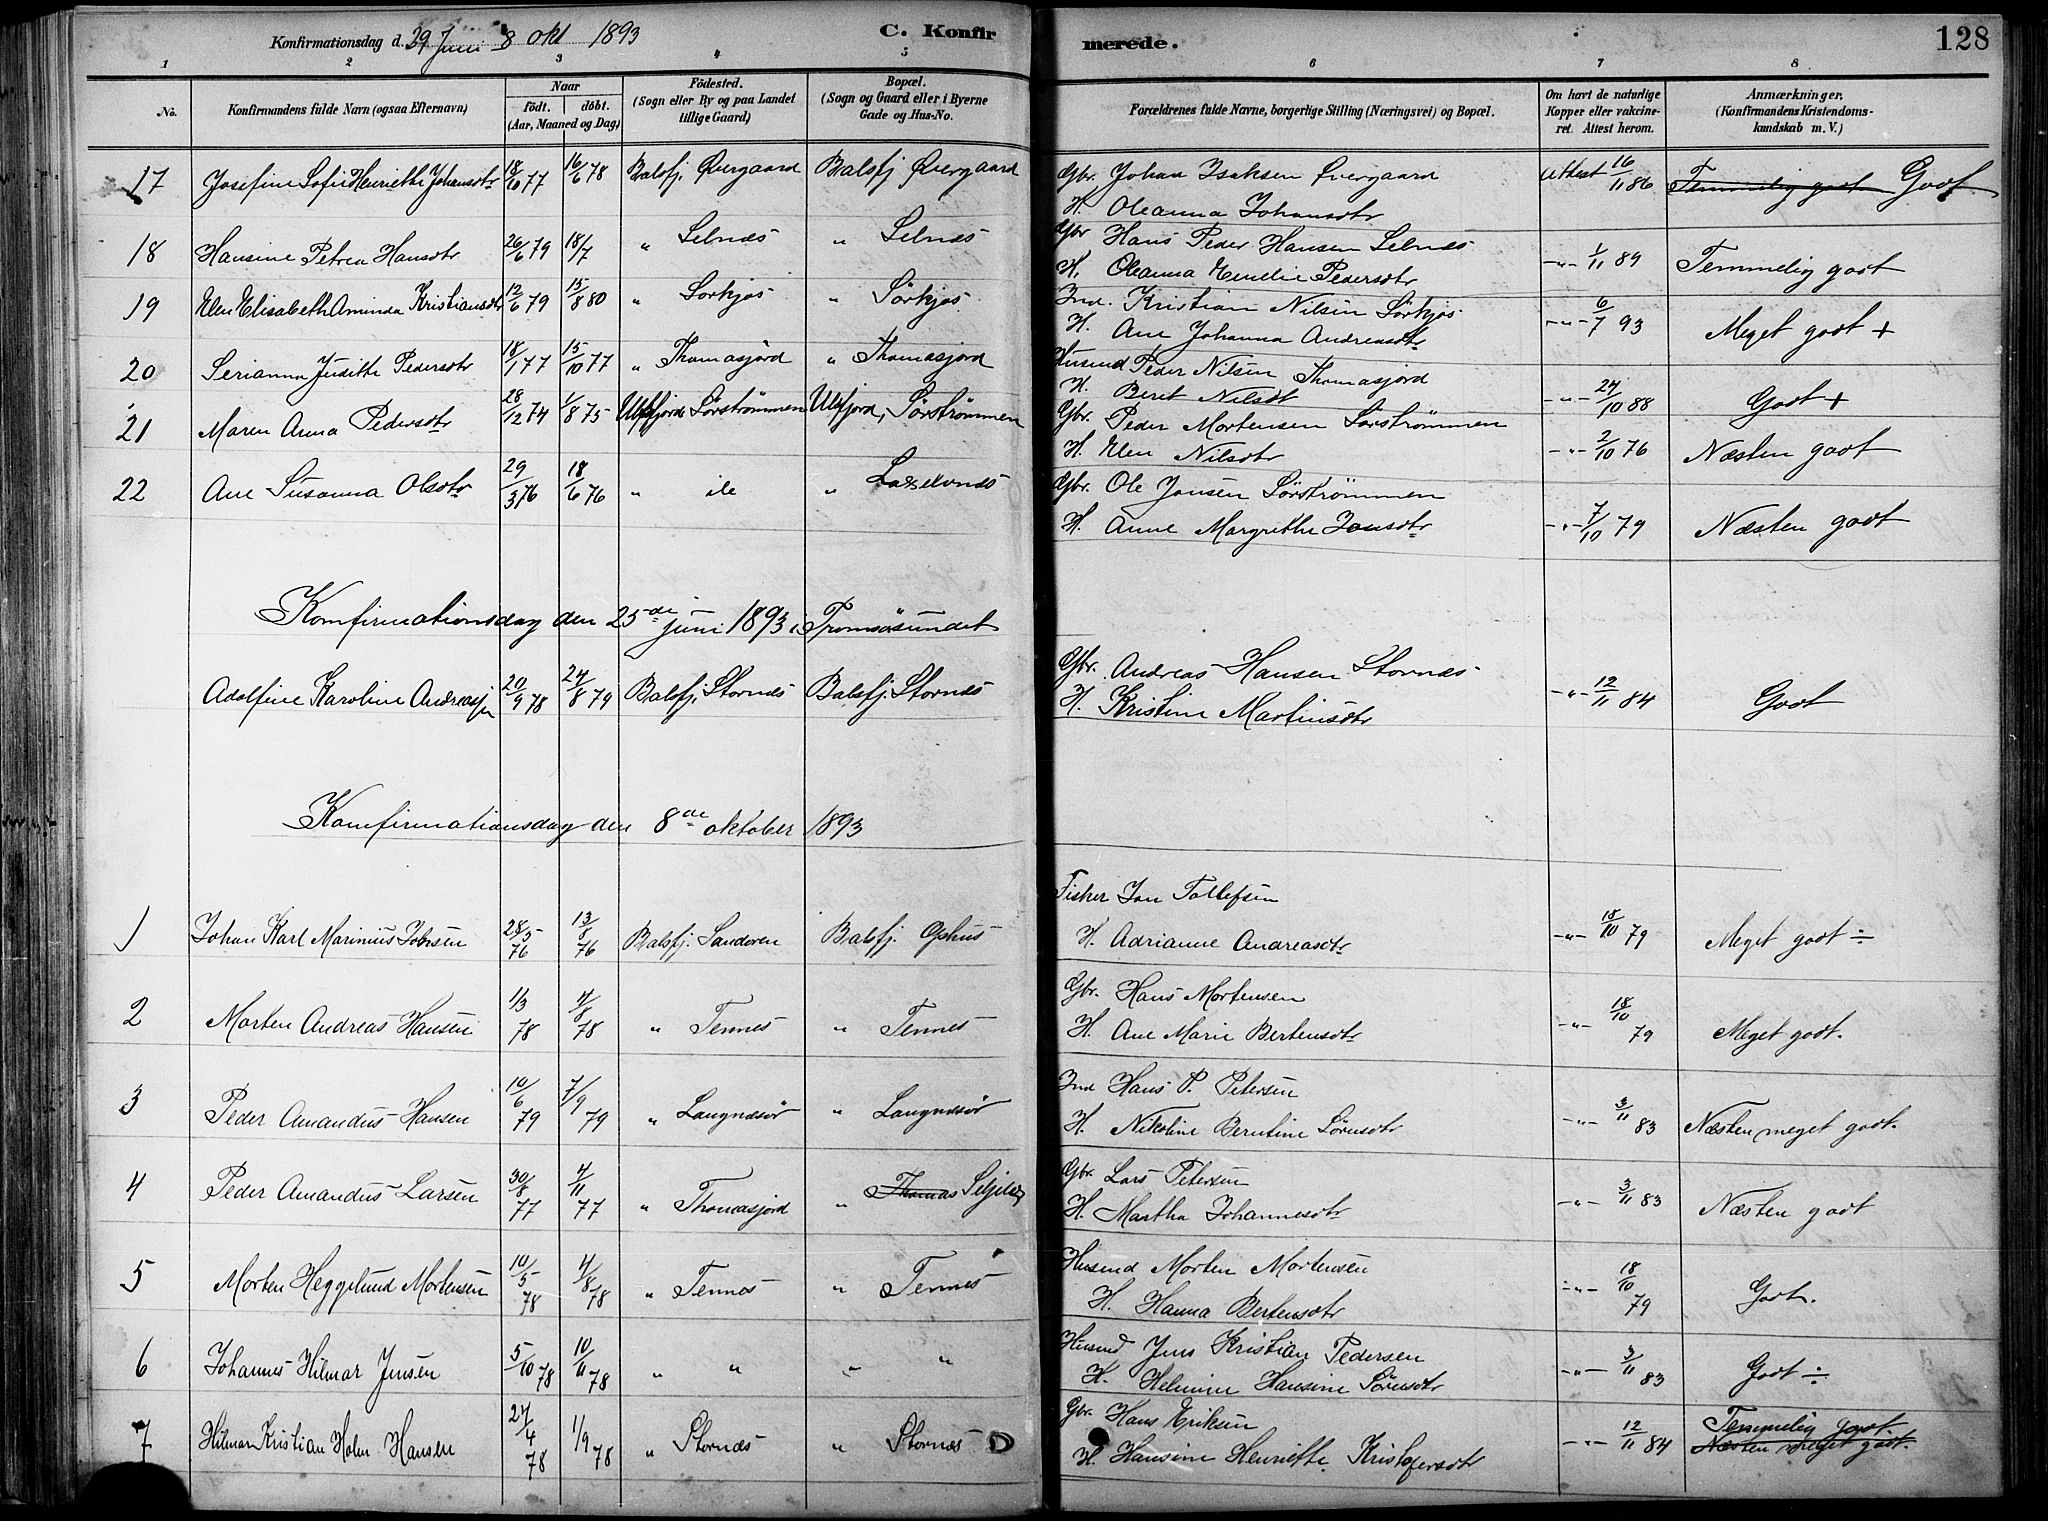 Konfirmationsdag d. 29 Juni 8 okt 1893 C. Konfirmerede. 128
1 2 3 4 5 6 7 8
No. Konfirmandens fulde Navn (ogsaa Efternavn) Naar födt. döbt. (Aar, Maaned og Dag) Födested. (Sogn eller By og paa Landet tillige Gaard) Bopæl. (Sogn og Gaard eller i Byerne Gade og Hus-No. Forældrenes fulde Navne, borgerlige Stilling (Næringsvei) og Bopæl. Om havt de naturlige Kopper eller vakcineret. Attest herom. Anmærkninger. (Konfirmandens Kristendomskundskab m. V.)
17 Josefine Sofie Henriette Johansdtr 18/10 77 16/6 78 Balsfj. Øvergaard Balsfj Øvergaard Gbr. Johan Isaksen Øvergaard Attest 16/11 86 Temmelig godt Godt
H. Oleanna Johansdtr
18 Hansine Petrea Hansdtr 26/6 79 18/7 " Selnæs " Selnæs Gbr Hans Peder Hansen Selnæs -"- 1/11 89 Temmelig godt
H. Oleanna Emelie Pedersdtr
19 Elen Elisabeth Aminda Kristiansdtr 12/6 79 15/8 80 " Sörkjos " Sörkjos. Ind. Kristian Nilsen Sörkjos. -"- 6/7 93 Meget godt +
H. Ane Johanna Andreasdtr
20 Serianna Juditte Pedersdtr 18/1 77 15/10 77 " Thomasjord " Thomasjord Husmd Peder Nilsen Thomasjord -"- 24/10 88 Godt +
H. Beret Nilsdt
21 Maren Anna Pedersdtr 28/12 74 1/8 75 Ulfsfjord Sörströmmen Ulfsfjord, Sörströmmen Gbr. Peder Mortensen Sörströmmen -"- 2/10 76 Næsten godt
H. Elen Nilsdtr
22 Ane Susanna Olsdtr 29/3 76 18/6 76 " " Gbr. Ole Jonsen Sörströmmen -"- 7/10 79 Næsten godt
H. Anne Margrethe Jonsdtr
Konfirmationsdag den 25de juni 1893 i Tromsösundet
Adolfine Karoline Andreas 20/9 78 24/8 79 Balsfj. Stornæs Balsfj. Stornæs Gbr. Andreas Hansen Stornæs -"- 12/11 84 Godt
H. Kristine Martinsdtr
Konfirmationsdag den 8de oktober 1893
1 Johan Karl Marinius 28/5 76 13/8 76 Balsfj. Sandören Balsfj. Ophus Fisker Jon Tollefsen -"- 18/10 79 Meget godt ÷
H. Adrianne Andreasdtr
2 Morten Andreas Hansen 1/3 78 4/8 78 " Tennes " Tennes Gbr. Hans Mortensen -"- 18/10 79 Meget godt.
H. Ane Marie Bertensdtr
3 Peder Amandus Hansen 10/6 79 7/9 79 " Langnæsör " Langnæsör Ind Hans P. Petersen -"- 3/11 83 Næsten meget godt.
H. Nikoline Berntine Sörensdtr
4 Peder Amandus Larsen 30/8 77 4/11 77 " Thomasjord " Thomas Gbr. Lars Petersen -"- 3/11 83 Næsten godt
H. Martha Johannesdtr
5 Morten Heggelund Mortensen 10/5 78 4/8 78 " Tennes " Tennes Husmd Morten Mortensen -"- 18/10 79 Godt.
H. Hanna Bertensdtr
6 Johannes Hilmar Jensen 5/10 78 10/11 78 " " " " Husmd Jens Kristian Pedersen -"- 3/11 83 Godt ÷
H. Helmine Hansine Sörensdtr
7 Hilmar Kristian Holm Hansen 27/4 78 1/9 78 " Stornæs " Stornæs Gbr. Hans Eriksen -"- 12/11 84 Temmelig godt. Næsten meget godt.
H. Hansine Henriette Kristofersdtr